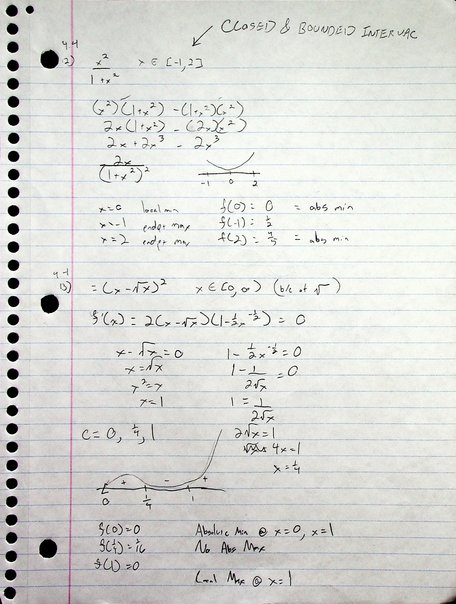 CLOSED & BOUNDED INTERVAL
4.4
2) x²/(1+x²) x ∈ [-1,2]
(x²)'(1+x²) - (1+x²)'(x²)
2x(1+x²) - (2x)(x²)
2x + 2x³ - 2x³
2x/(1+x²)²
-1 0 2
x=0 local min f(0) = 0 = abs min
x=-1 endpt max f(-1) = 1/2
x=2 endpt max f(2) = 4/5 = abs min
4-1
13) = (x-√x)² x ∈ [0,∞) (b/c of √)
f'(x) = 2(x-√x)(1-½x^-½) = 0
x-√x = 0 1-½x^-½ = 0
x=√x 1 - 1/(2√x) = 0
x²=x
x=1 1 = 1/(2√x)
c = 0, ¼, 1 2√x = 1
4x=1
x=¼
+ - +
0 ¼ 1
f(0)=0 Absolute Min @ x=0, x=1
f(¼)=1/16 No Abs Max
f(1)=0
Local Max @ x=1